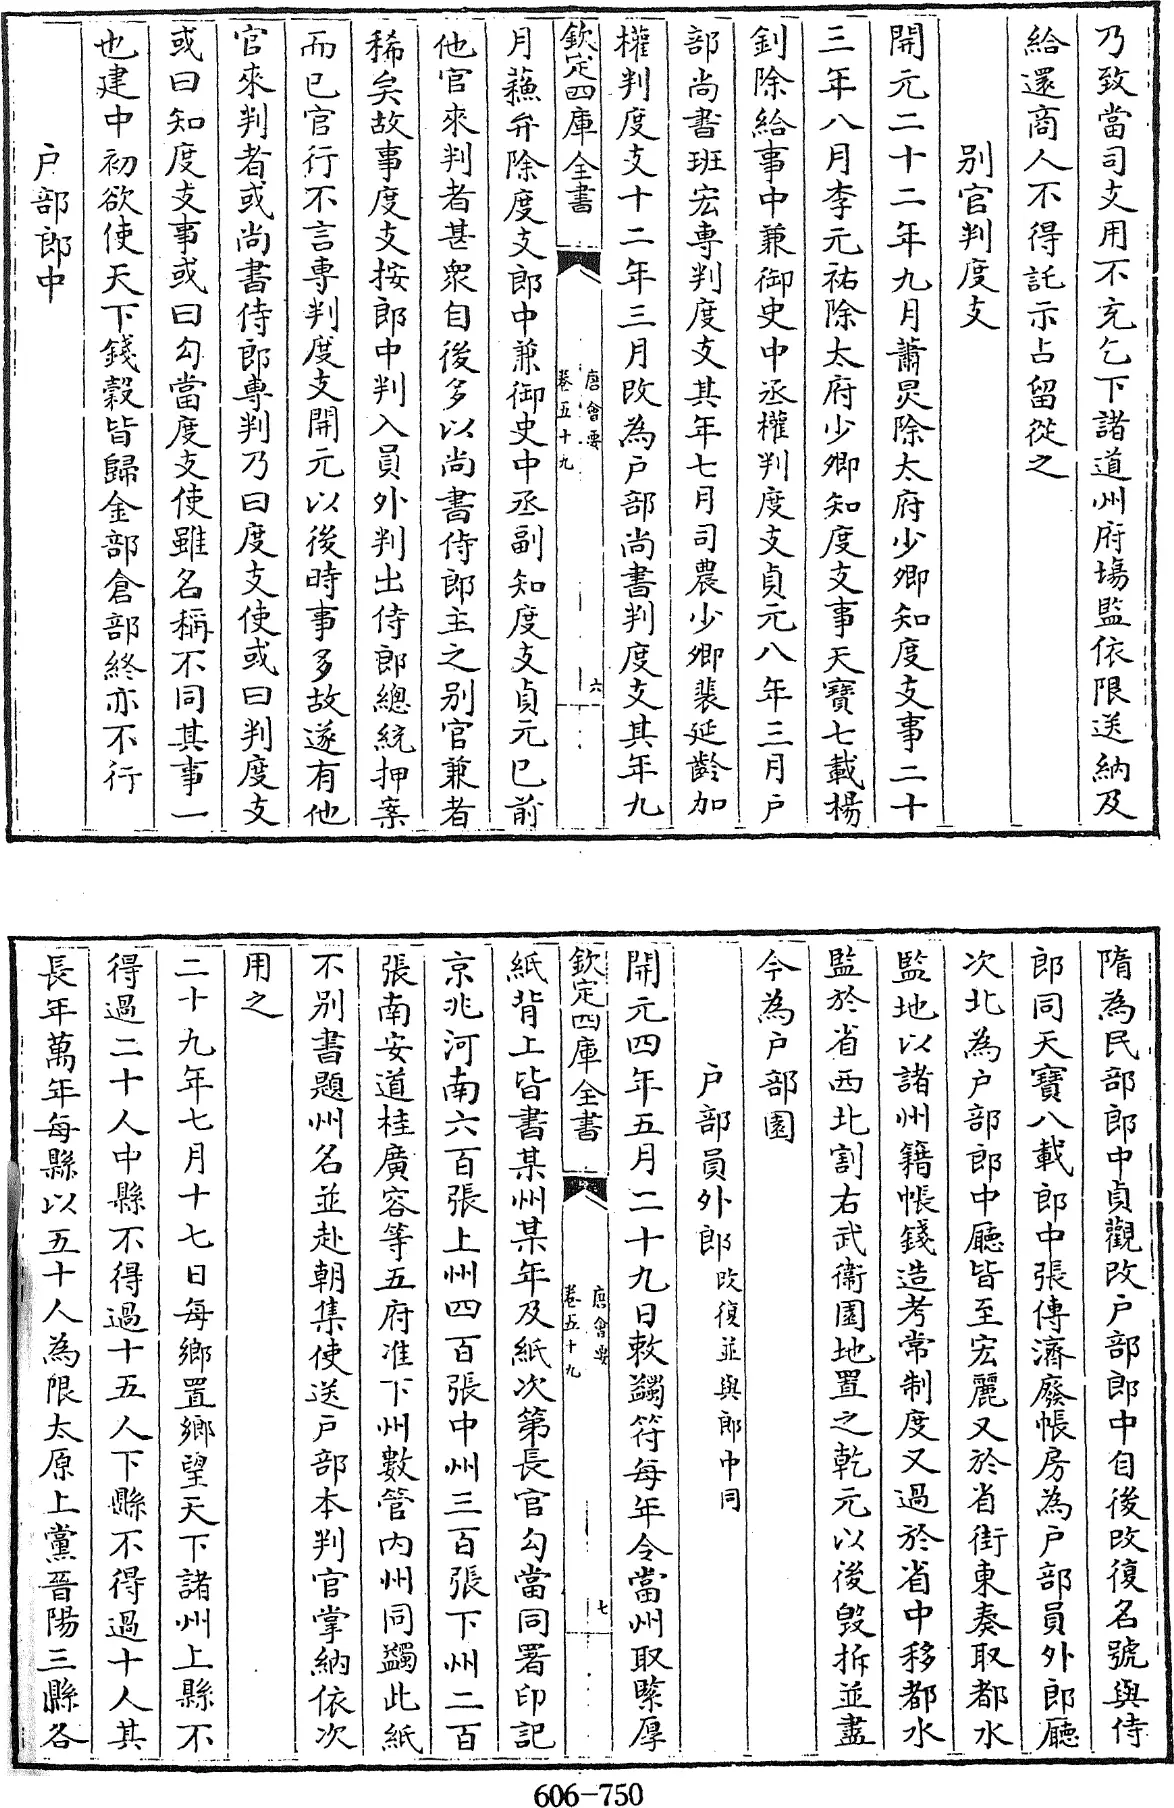 乃致當司支用不充乞下諸道州府場監依限送納及
給還商人不得託示占留從之
别官判度支
開元二十二年九月蕭炅除太府少卿知度支事二十
三年八月李元祐除太府少卿知度支事天寶七載楊
釗除給事中兼御史中丞權判度支貞元八年三月户
部尚書班宏専判度支其年七月司農少卿裴延齡加
權判度支十二年三月改為户部尚書判度支其年九
欽定四庫全書
唐會要
卷五十九
六
月蘓弁除度支郎中兼御史中丞副知度支貞元已前
他官來判者甚衆自後多以尚書侍郎主之别官兼者
稀矣故事度支按郎中判入員外判出侍郎總統押案
而已官行不言専判度支開元以後時事多故遂有他
官來判者或尚書侍郎専判乃曰度支使或曰判度支
或曰知度支事或曰勾當度支使雖名稱不同其事一
也建中初欲使天下錢穀皆歸金部倉部終亦不行
户部郎中
隋為民部郎中貞觀改户部郎中自後改復名號與侍
郎同天寶八載郎中張傳濟廢帳房為户部員外郎廳
次北為户部郎中廳皆至宏麗又於省街東奏取都水
監地以諸州籍帳錢造考常制度又過於省中移都水
監於省西北割右武衞園地置之乾元以後毁拆並盡
今為户部園
户部員外郎改復並與郎中同
開元四年五月二十九日敕蠲符每年令當州取緊厚
欽定四庫全書
唐會要
卷五十九
七
紙背上皆書某州某年及紙次第長官勾當同署印記
京兆河南六百張上州四百張中州三百張下州二百
張南安道桂廣容等五府准下州數管内州同蠲此紙
不别書題州名並赴朝集使送户部本判官掌納依次
用之
二十九年七月十七日每鄉置鄉望天下諸州上縣不
得過二十人中縣不得過十五人下縣不得過十人其
長年萬年每縣以五十人為限太原上黨晉陽三縣各
606-750